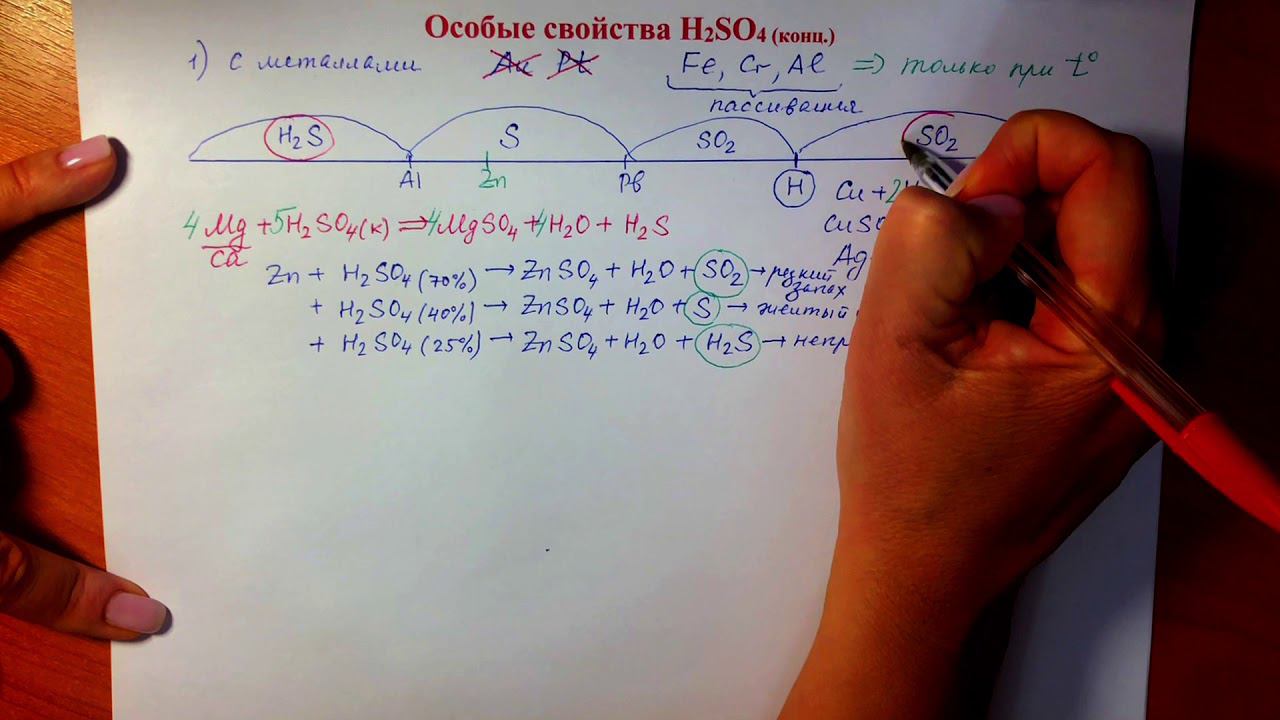 Особые свойства H₂SO₄ (конц.)
1) с металлами Au Pt Fe, Cr, Al => только при t°
пассивация
H₂S S SO₂ SO₂
Al Zn Pb H
Cu + 2
4Mg + 5H₂SO₄(к) => 4MgSO₄ + 4H₂O + H₂S
CuSO
Ca
Ag
Zn + H₂SO₄ (70%) → ZnSO₄ + H₂O + SO₂ → резкий
запах
+ H₂SO₄ (40%) → ZnSO₄ + H₂O + S → желтый
+ H₂SO₄ (25%) → ZnSO₄ + H₂O + H₂S → непр